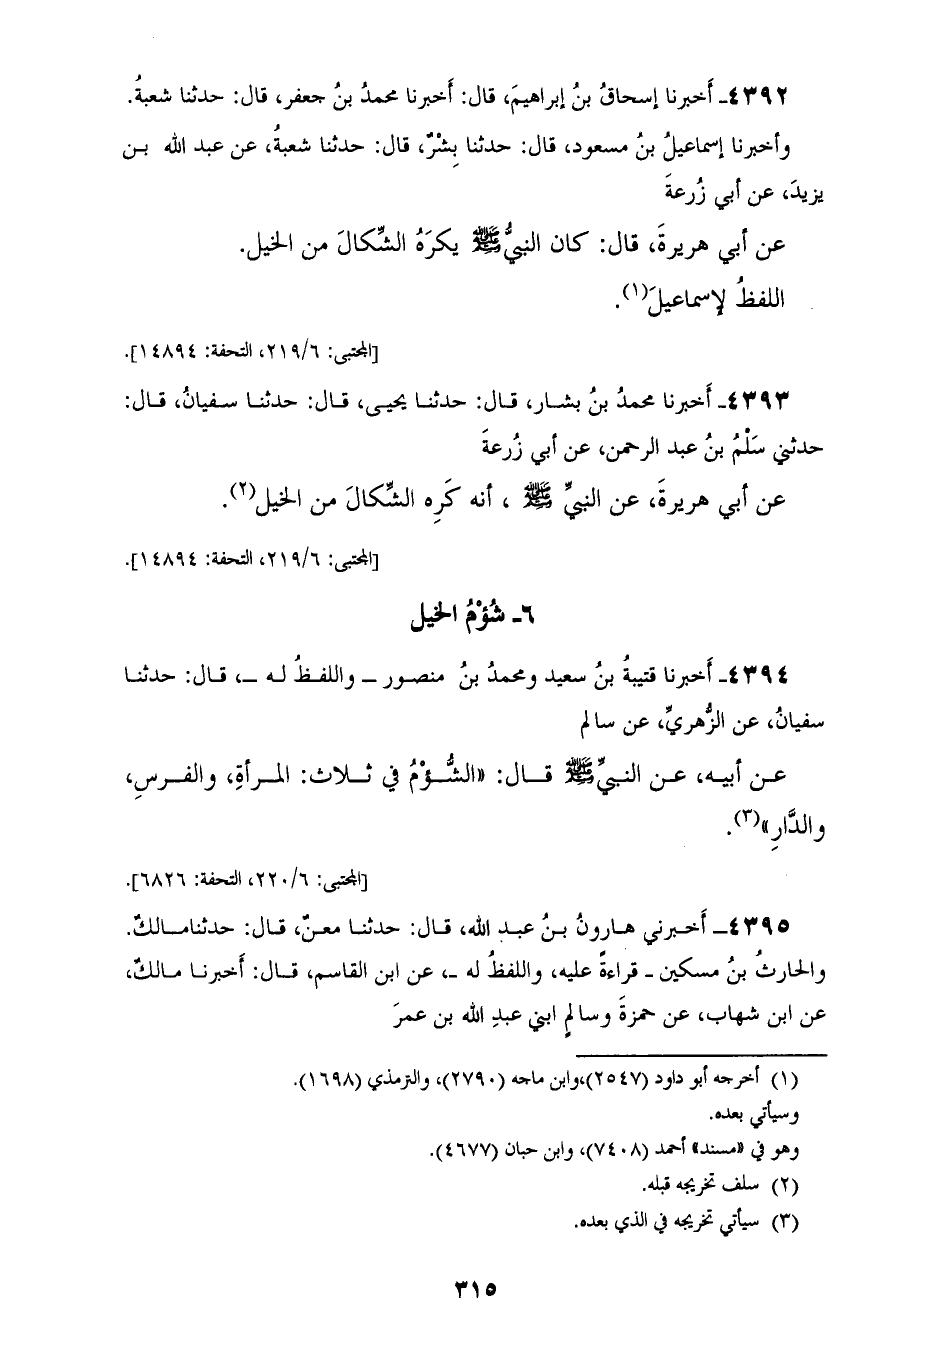 ٤٣٩٢ـ أَخبرنا إسحاقُ بنُ إبراهيمَ، قال: أَخبرنا محمدُ بنُ جعفر، قال: حدثنا شعبةُ.
وأخبرنا إسماعيلُ بنُ مسعود، قال: حدثنا بِشْرٌ، قال: حدثنا شعبةُ، عن عبد الله بن
يزيدَ، عن أبي زُرعةَ
عن أبي هريرةَ، قال: كان النبيُّ ﷺ يكرَهُ الشِّكالَ من الخيل.
اللفظُ لإسماعيلَ(١).
[المجتبى: ٢١٩/٦، التحفة: ١٤٨٩٤].
٤٣٩٣ـ أَخبرنا محمدُ بنُ بشار، قال: حدثنا يحيى، قال: حدثنا سفيانُ، قال:
حدثني سَلْمُ بنُ عبد الرحمن، عن أبي زُرعةَ
عن أبي هريرةَ، عن النبيِّ ﷺ ، أنه كَرِه الشِّكالَ من الخيل(٢).
[المجتبى: ٢١٩/٦، التحفة: ١٤٨٩٤].
٦ـ شُؤْمُ الخيل
٤٣٩٤ـ أَخبرنا قتيبةُ بنُ سعيد ومحمدُ بنُ منصور ـ واللفظُ له ـ، قال: حدثنا
سفيانُ، عن الزُّهريِّ، عن سالم
عن أبيه، عن النبيِّ ﷺ قال: «الشُّؤْمُ في ثلاث: المرأةِ، والفرسِ،
والدَّارِ»(٣).
[المجتبى: ٢٢٠/٦، التحفة: ٦٨٢٦].
٤٣٩٥ـ أَخبرني هارونُ بنُ عبد الله، قال: حدثنا معنٌ، قال: حدثنا مالكٌ.
والحارثُ بنُ مسكين ـ قراءةً عليه، واللفظُ له ـ، عن ابن القاسم، قال: أخبرنا مالكٌ،
عن ابن شهاب، عن حمزةَ وسالمٍ ابني عبدِ الله بن عمرَ
(١) أخرجه أبو داود (٢٥٤٧)،وابن ماجه (٢٧٩٠)، والترمذي (١٦٩٨).
وسيأتي بعده.
وهو في «مسند» أحمد (٧٤٠٨)، وابن حبان (٤٦٧٧).
(٢) سلف تخريجه قبله.
(٣) سيأتي تخريجه في الذي بعده.
٣١٥